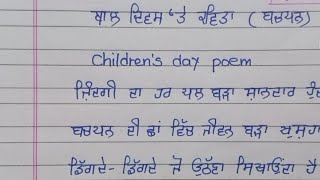 ਬਾਲ ਦਿਵਸ 'ਤੇ ਕਵਿਤਾ (ਬਚਪਨ)
Children's day poem
ਜ਼ਿੰਦਗੀ ਦਾ ਹਰ ਪਲ ਬੜਾ ਸ਼ਾਨਦਾਰ
ਬਚਪਨ ਦੀ ਛਾਂ ਵਿੱਚ ਜੀਵਨ ਬੜਾ
ਡਿੱਗਦੇ-ਡਿੱਗਦੇ ਜੋ ਉਠਣਾ ਸਿਖਾਉਂਦਾ ਹੈ